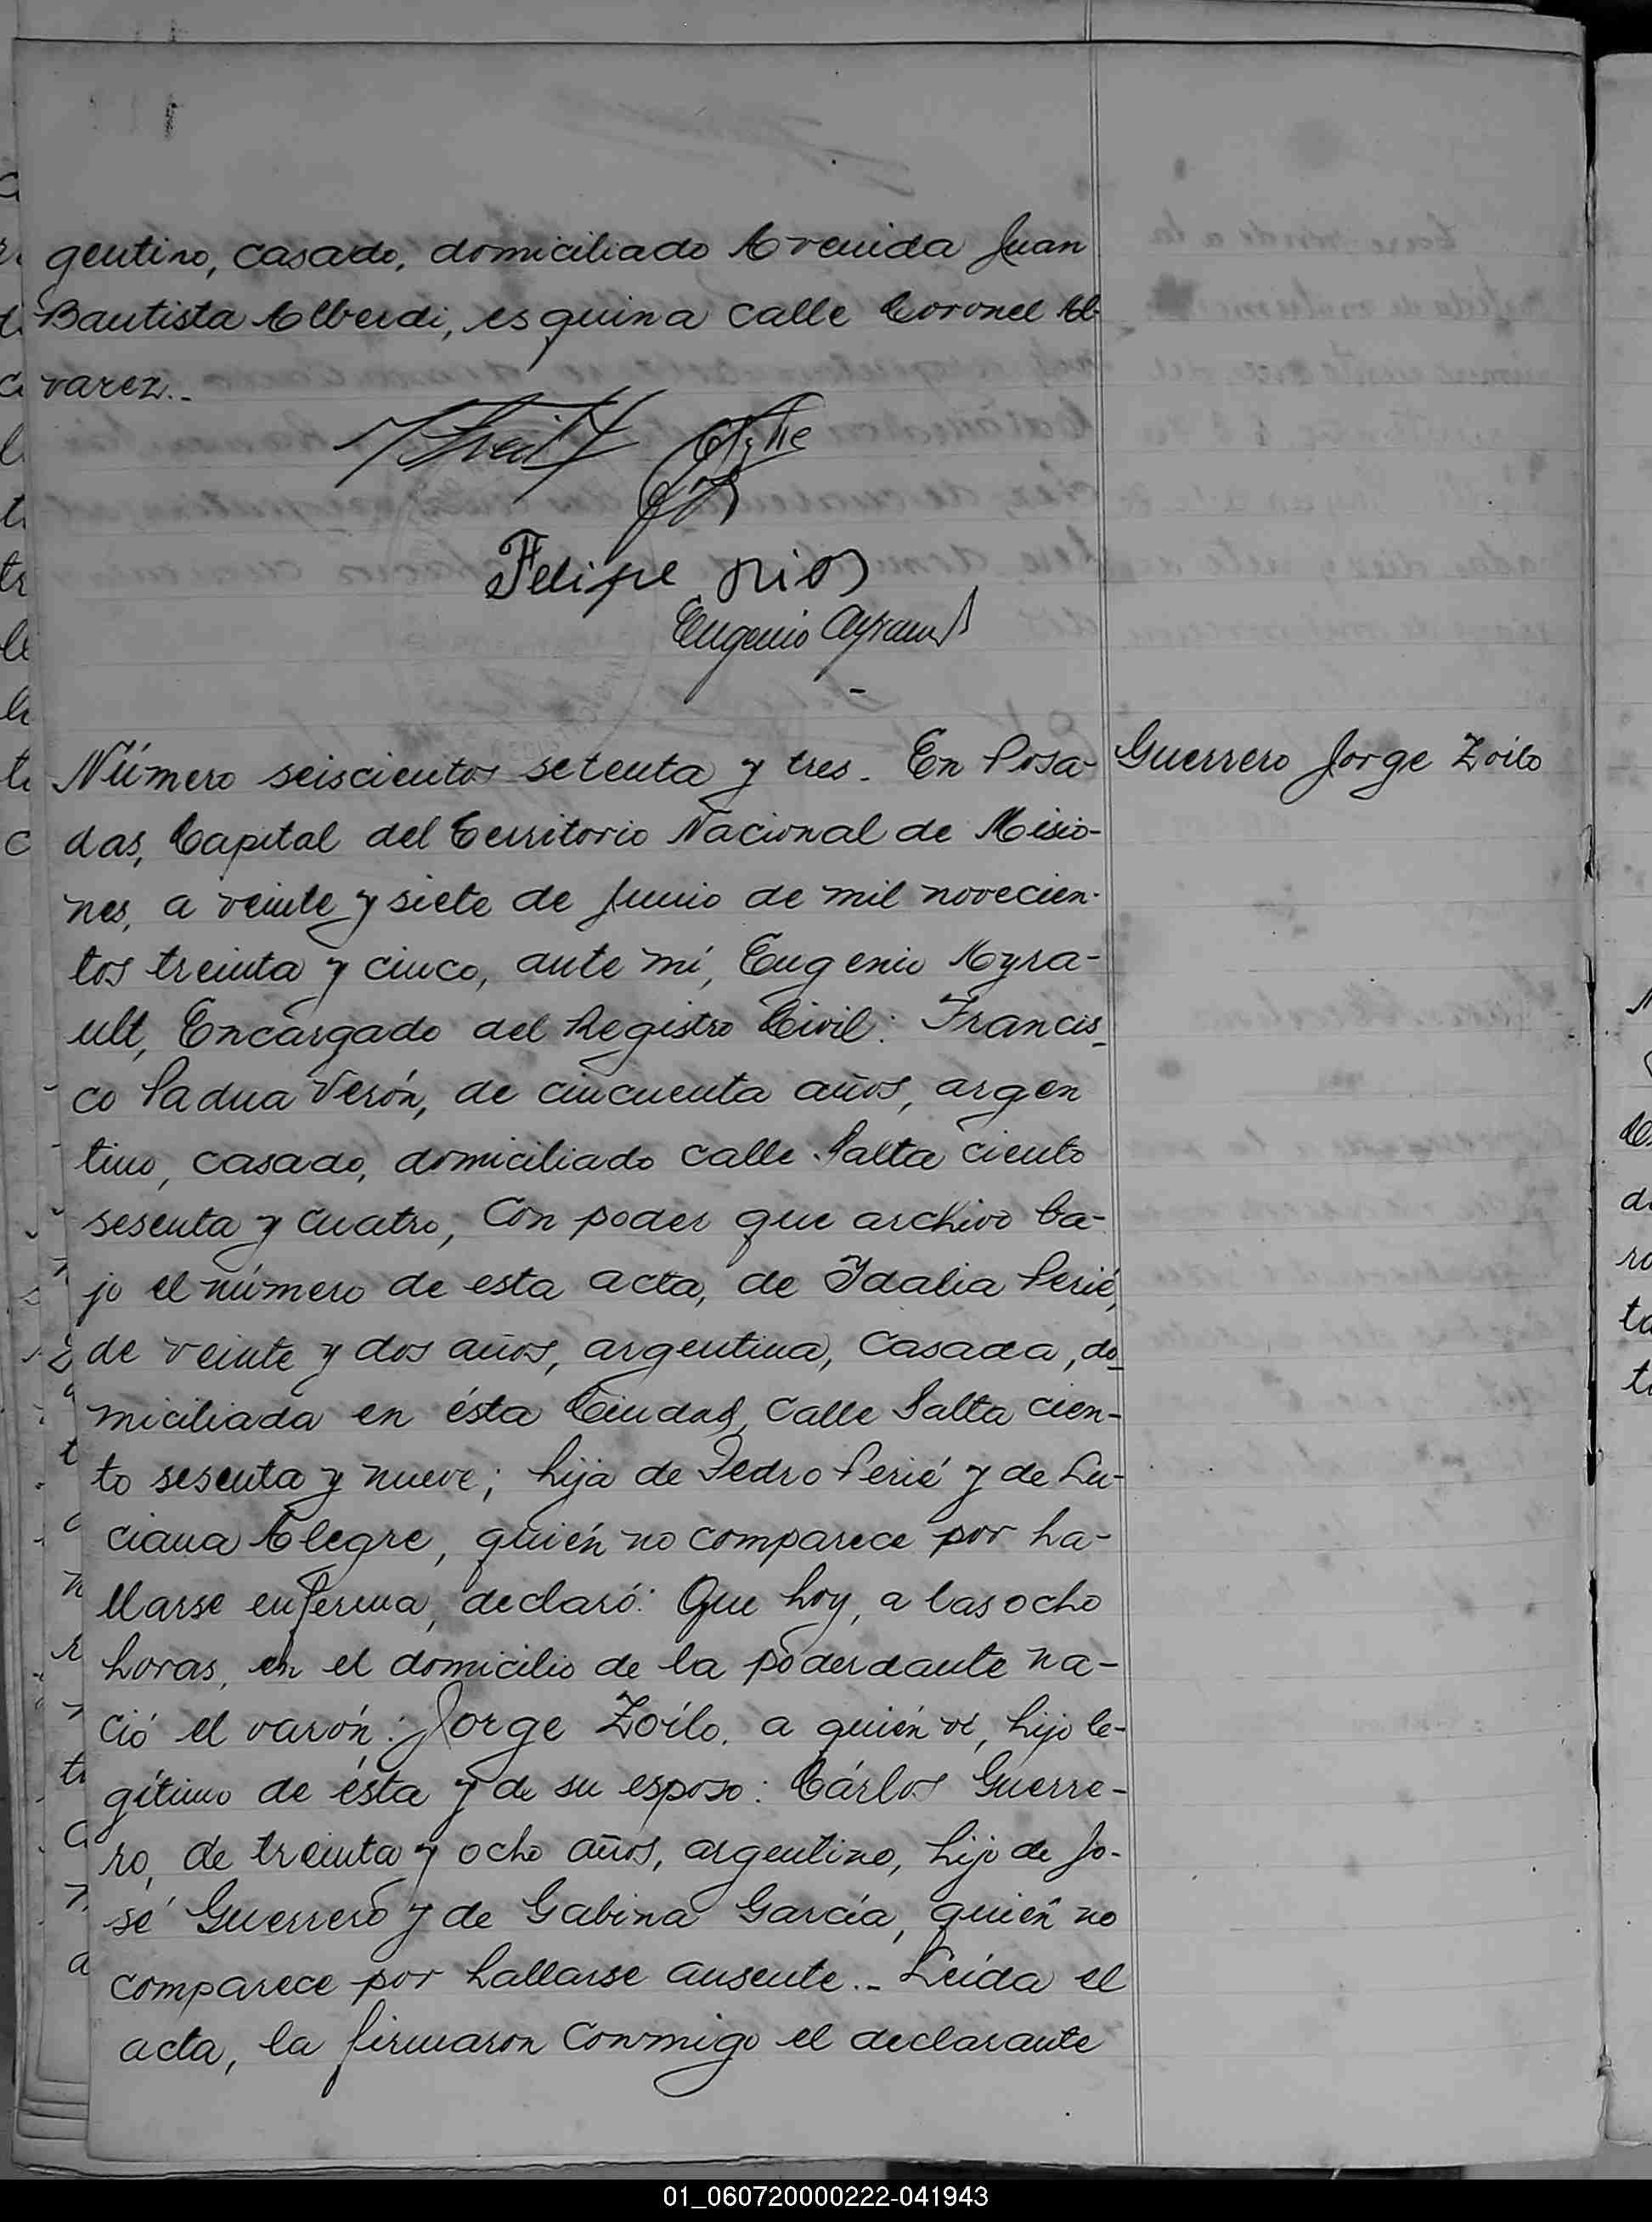 gentino, casado, domiciliado Avenida Juan
Bautista Alberdi, esquina calle Coronel Al
varez.-
Felipe Rios
Eugenio Ayrault
Número seiscientos setenta y tres. En Posa-
Guerrero Jorge Zoilo
das, Capital del Territorio Nacional de Misio-
nes, a veinte y siete de Junio de mil novecien-
tos treinta y cinco, ante mí, Eugenio Ayra-
ult, Encargado del Registro Civil: Francis-
co Padua Verón, de cincuenta años, argen
tino, casado, domiciliado calle Salta ciento
sesenta y cuatro, con poder que archivo ba-
jo el número de esta acta, de Idalia Perié,
de veinte y dos años, argentina, casada, do-
miciliada en ésta Ciudad, calle Salta cien-
to sesenta y nueve; hija de Pedro Perié y de Lu-
ciana Alegre, quién no comparece por ha-
llarse enferma, declaró: Que hoy, a las ocho
horas, en el domicilio de la poderdante na-
ció el varón: Jorge Zoilo, a quién ví, hijo le-
gítimo de ésta y de su esposo: Cárlos Guerre-
ro, de treinta y ocho años, argentino, hijo de Jo-
sé Guerrero y de Gabina García, quién no
comparece por hallarse ausente.- Leída el
acta, la firmaron conmigo el declarante
01_060720000222-041943